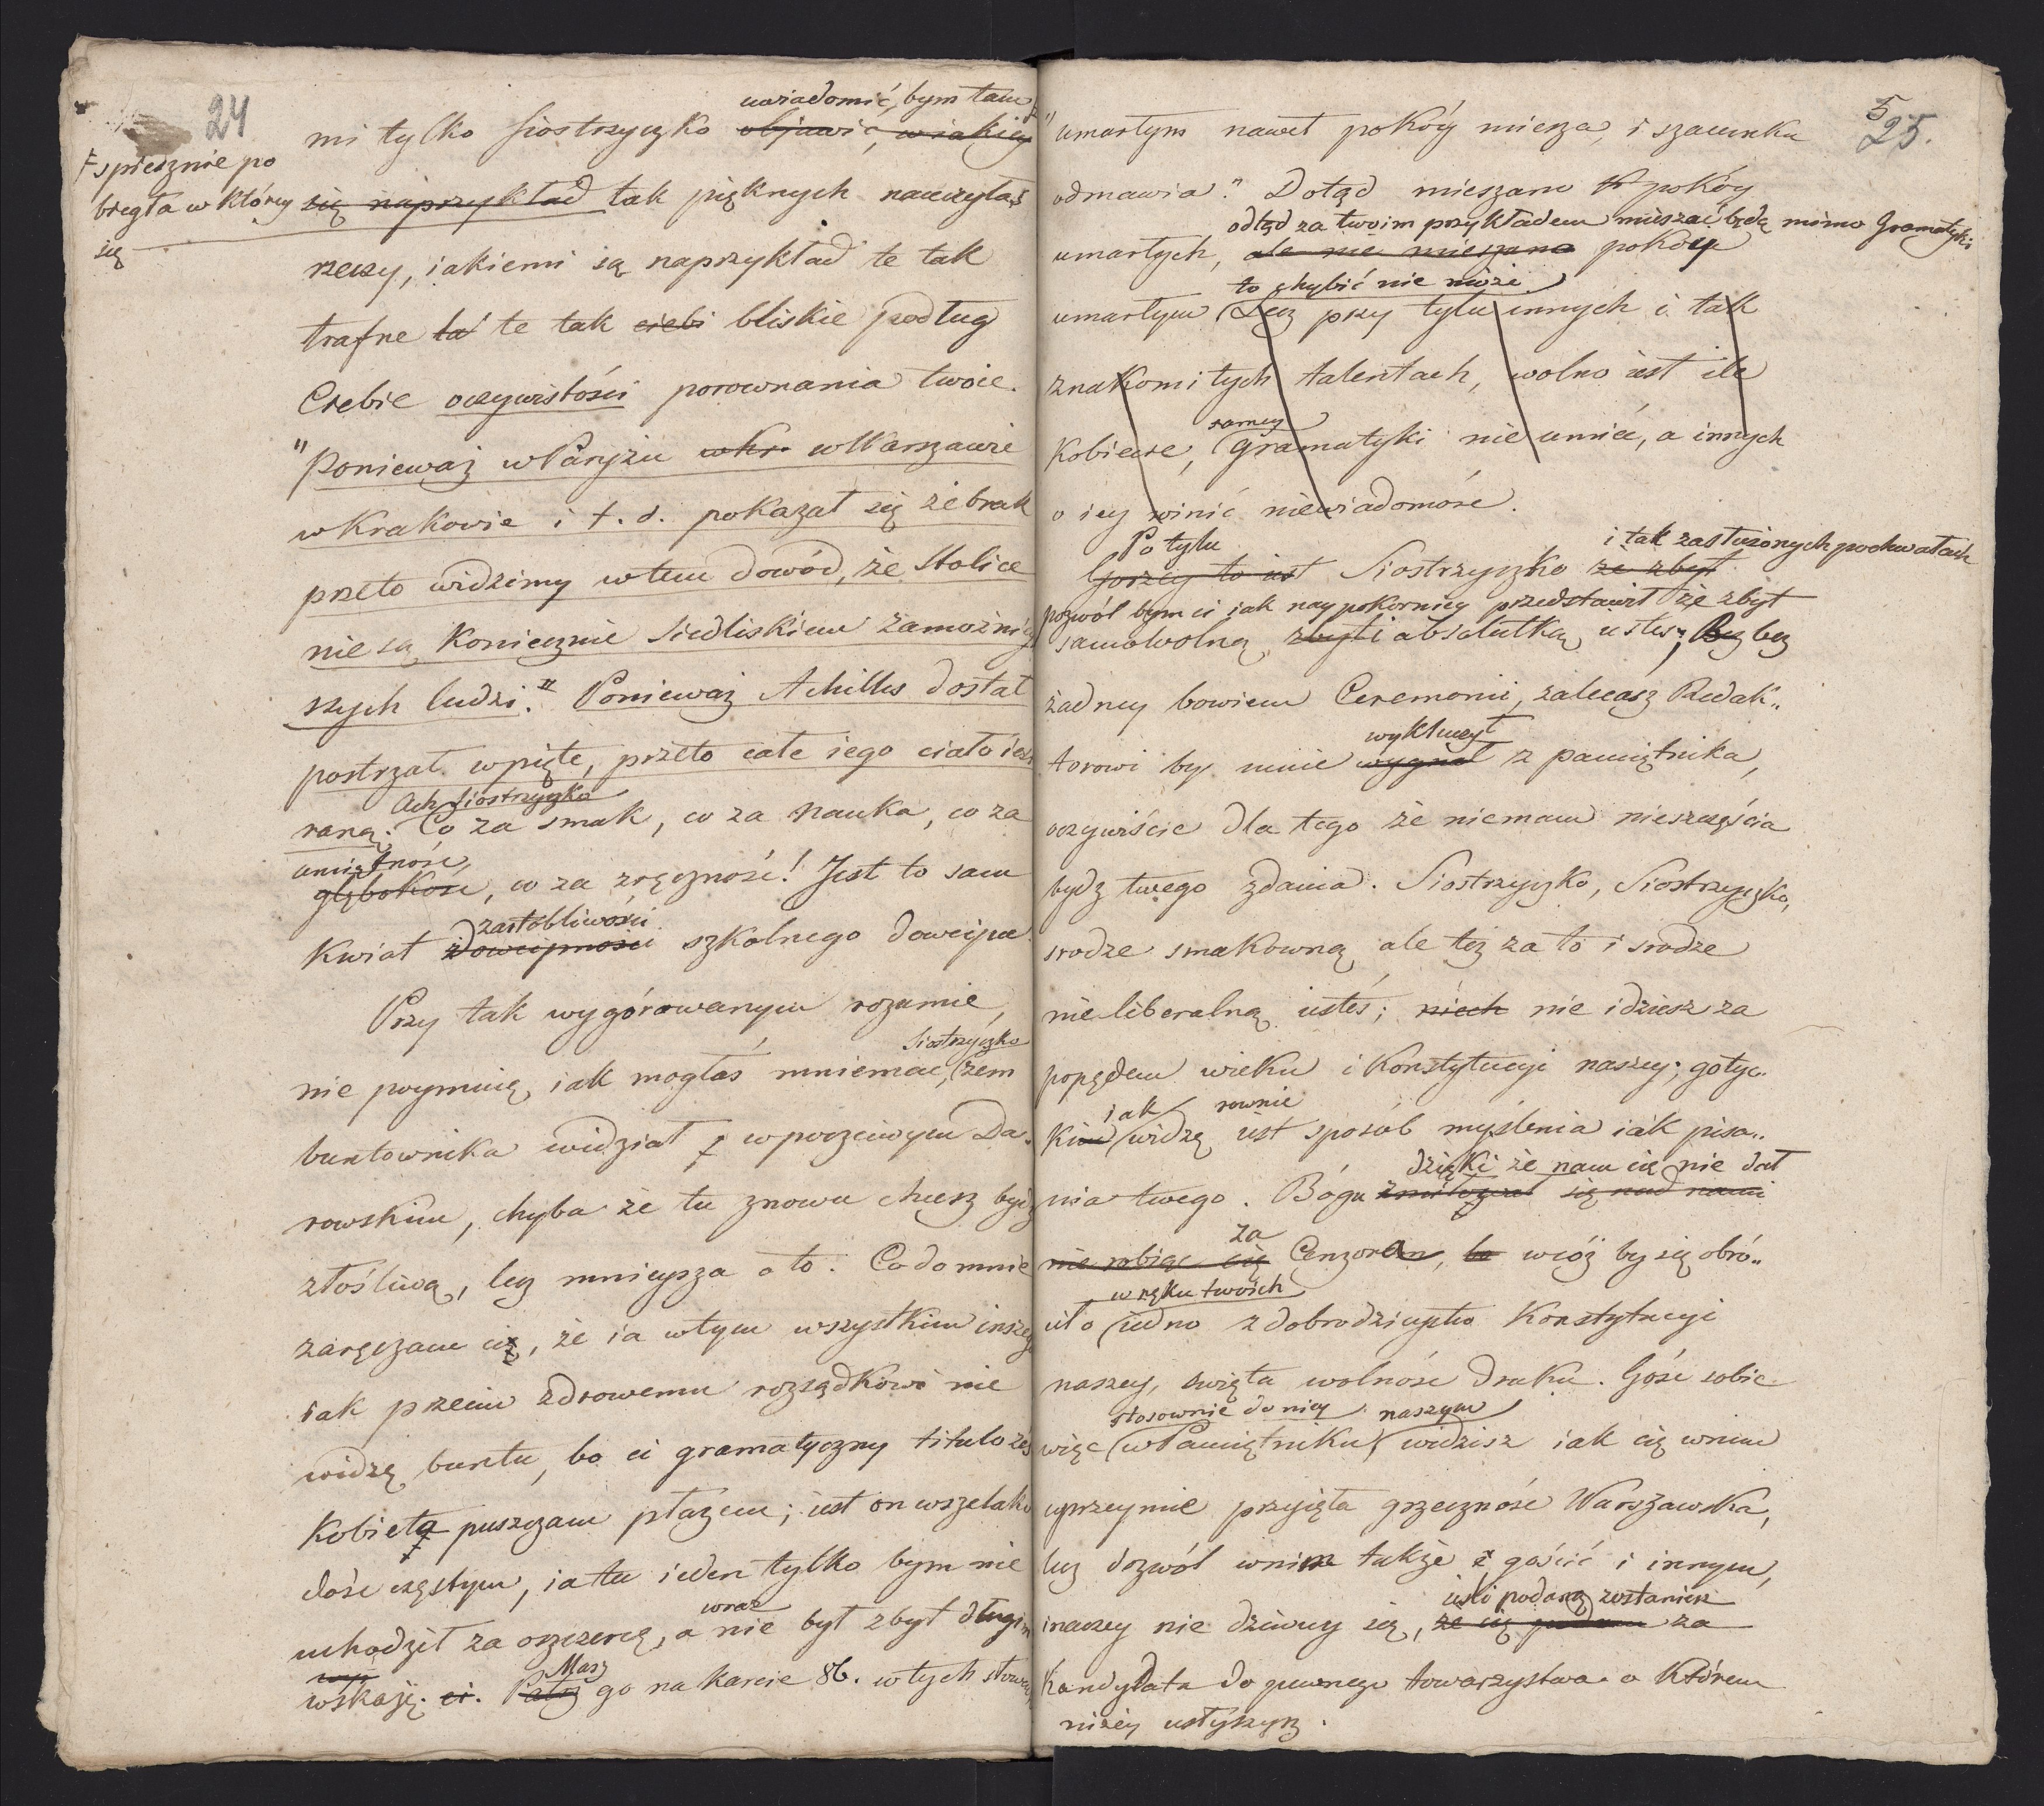 24
uwiadomić, bym tam
mi tylko siostrzyczko objawić, w iakiey
spiesznie po
biegła w którey
się
się naprzykład tak pięknych nauczyłaś
rzeczy, iakiemi są naprzykład te tak
trafne te tak ciebi bliskie podług
Ciebie oczywistości porownania twoie.
"Ponieważ w Paryżu w Warszawie
w Krakowie i t. d. pokazał się żebrak
przeto widzimy w tem dowód, że Stolice
nie są koniecznie siedliskiem zamożniey
szych ludzi." Ponieważ Achilles dostał
postrzał w piętę, przeto całe iego ciało iest
Ach siostrzyczko
raną. Co za smak, co za nauka, co za
umiętność
głębokość, co za zręczność! Jest to sam
zartobliwości
kwiat dowcipności szkolnego dowcipu
Przy tak wygórowanym rozumie,
Siostrzyczko
nie poymuię iak mogłaś mniemać, żem
buntownika widział w poczciwym Da-
rowskim, chyba że tu znowu chcesz bydź
złośliwą, lecz mnieysza o to. Co do mnie
zaręczam cię, że ia w tym wszystkim inszego
iak przeciw zdrowemu rozsądkowi nie
widzę buntu, bo ci gramatyczny titulo żeś
kobietą puszczam płazem; iest on wszelako
dość częstym, ia tu ieden tylko bym nie
wraz
uchodził za oszczercę, a nie był zbyt długim
Masz
wskażę. ci. go na karcie 86. w tych słowach
5
25.
"umarłym nawet pokóy miesza, i szacunku
odmawia." Dotąd mieszam pokóy
odtąd za twoim przykładem mieszać będę mimo Gramatyki
umarłych, ale nie mieszano pokóy
to chybić nie może
umarłym Lecz przy tylu innych i tak
znakomitych talentach, wolno iest ile
samey
kobiecie, Gramatyki nie umieć, a innych
o iey winić niewiadomość.
Po tylu i tak zasłużonych pochwałach
Gorzey to iest Siostrzyczko że zbyt
pozwól bym ci iak naypokorniey przedstawił że zbyt
samowolną zbyt i absolutką iesteś; bez
żadney bowiem Ceremonii, zalecasz Redak-
wykluczył
torowi by mnie wygnał z pamiętnika,
oczywiście dla tego że niemam nieszczęścia
bydź twego zdania. Siostrzyczko, Siostrzyczko,
srodze smakowną ale też za to i srodze
nieliberalną iesteś; niech nie idziesz za
popędem wieku i Konstytucyi naszey; gotyc-
iak rownie
kim widzę iest sposób myślenia iak pisa-
dzięki że nam cię nie dał
nia twego. Bogu zmiłował się nad nami
za
nie robiąc cię Cenzorem, bo wciąż by się obró-
w ręku twoich
ciło iedno z dobrodzieystw Konstytucyi
naszey, święta wolność druku. Gość sobie
stosownie do niey naszym
więc w Pamiętniku, widzisz iak cię w nim
uprzeymie przyięła grzeczność Warszawska,
lecz dozwól w nim także gościć i innym,
iesli podaną zostaniesz
inaczey nie dziwuy się, że cię podam za
Kandydata do pewnego towarzystwa o którem
niżey usłyszysz.